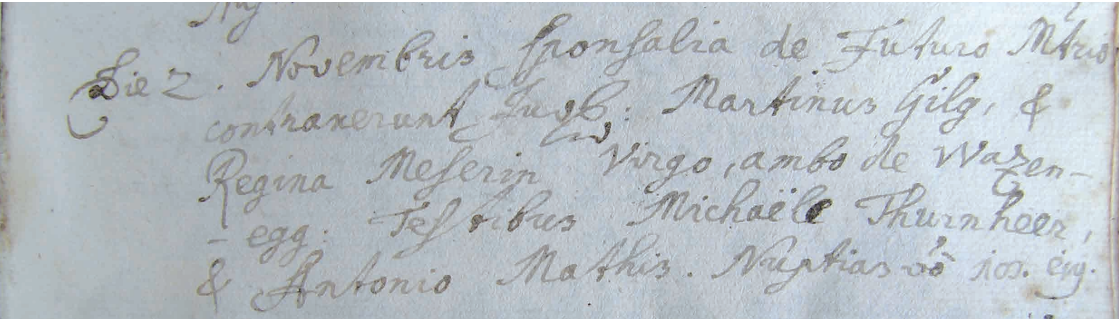 Die 2. Novembris Sponsalia de Futuro Mtrio
contraxerunt Juv: Martinus Gilg, &
Regina Meserin Virgo, ambo de Wazen-
- egg: Testibus Michaële Thurnheer,
& Antonio Mathis. Nuptias